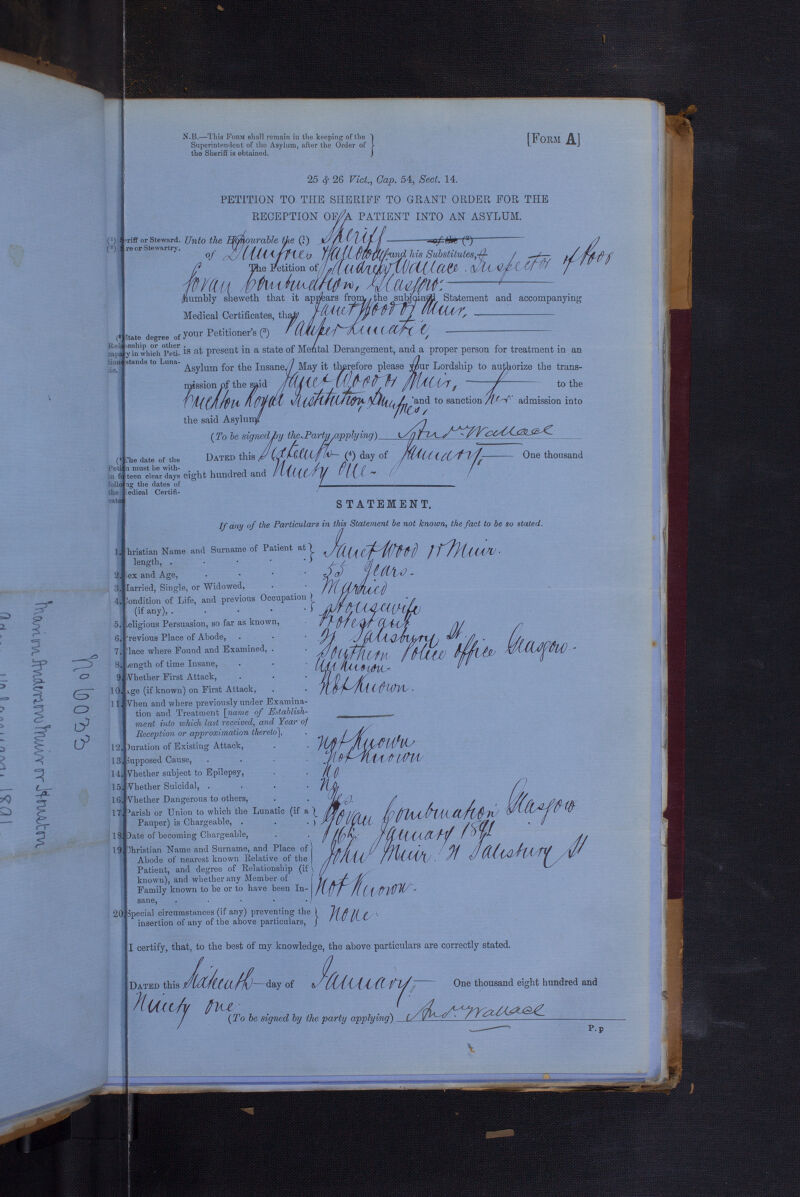 N.B.—This FORM shall remain in the keeping of the
Superintendent of the Asylum, after the Order of
the Sheriff is obtained.
[FORM A]
25 & 26 Vict., Cap. 54, Sect. 14.
PETITION TO THE SHERIFF TO GRANT ORDER FOR THE
RECEPTION OF A PATIENT INTO AN ASYLUM.
(1) eriff or Steward.
(2) re or Stewartry.
Unto the Honourable the (1) Sheriff of the (2)
of Dumfries & Galloway and his Substitutes,
The Petition of Andrew Wallace Inspector of Poor
Govan Combination, Glasgow.
Humbly sheweth that it appears from the subjoined Statement and accompanying
Medical Certificates, that Janet Wood or Muir,
(3) State degree of
onship or other
y in which Peti-
stands to Luna-
your Petitioner's (3) Pauper Lunatic,
is at present in a state of Mental Derangement, and a proper person for treatment in an
Asylum for the Insane. May it therefore please your Lordship to authorize the trans-
mission of the said Janet Wood or Muir, to the
Crichton Royal Institution, Dumfries, and to sanction her admission into
the said Asylum.
(To be signed by the Party applying) Andw Wallace
(4) The date of the
n must be with-
teen clear days
ng the dates of
edical Certifi-
DATED this Sixteenth (4) day of January, One thousand
eight hundred and Ninety One
STATEMENT.
If any of the Particulars in this Statement be not known, the fact to be so stated.
1. hristian Name and Surname of Patient at length, . Janet Wood or Muir.
2. ex and Age, 55 Years.
3. arried, Single, or Widowed, Married
4. ondition of Life, and previous Occupation (if any), . Housewife
5. eligious Persuasion, so far as known, Protestant
6. revious Place of Abode, 21 Salisbury St
7. lace where Found and Examined, . Southern Police Office Glasgow.
8. ength of time Insane, Unknown
9. Whether First Attack,
10. ge (if known) on First Attack, Not Known.
11. When and where previously under Examina-
tion and Treatment [name of Establish-
ment into which last received, and Year of
Reception or approximation thereto],
12. Duration of Existing Attack, Not Known
13. Supposed Cause, Not Known
14. Whether subject to Epilepsy, No
15. Whether Suicidal, . No
16. Whether Dangerous to others, Yes
17. Parish or Union to which the Lunatic (if a Pauper) is Chargeable, . Govan Combination Glasgow
18. Date of becoming Chargeable, 16th January 1891
19. Christian Name and Surname, and Place of
Abode of nearest known Relative of the
Patient, and degree of Relationship (if
known), and whether any Member of
Family known to be or to have been In-
sane,
John Muir 21 Salisbury St
Not Known.
20. Special circumstances (if any) preventing the insertion of any of the above particulars, None
I certify, that, to the best of my knowledge, the above particulars are correctly stated.
DATED this Sixteenth day of January, One thousand eight hundred and
Ninety One
(To be signed by the party applying) Andw Wallace
P. p
No 6033
Marion Anderson Muir or Houston
1891